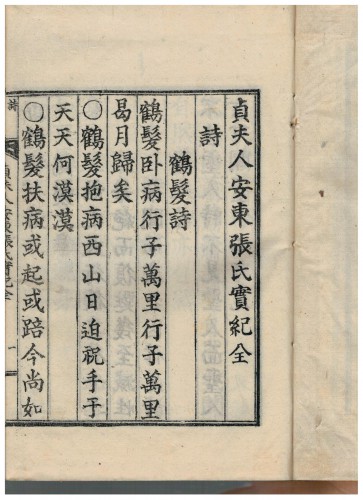 貞夫人安東張氏實紀全
詩
鶴髮詩
鶴髮卧病行子萬里行子萬里
曷月歸矣
○鶴髮抱病西山日迫祝手于
天天何漠漠
○鶴髮扶病或起或踣今尚如
詩
貞夫人安東張氏實紀全
一